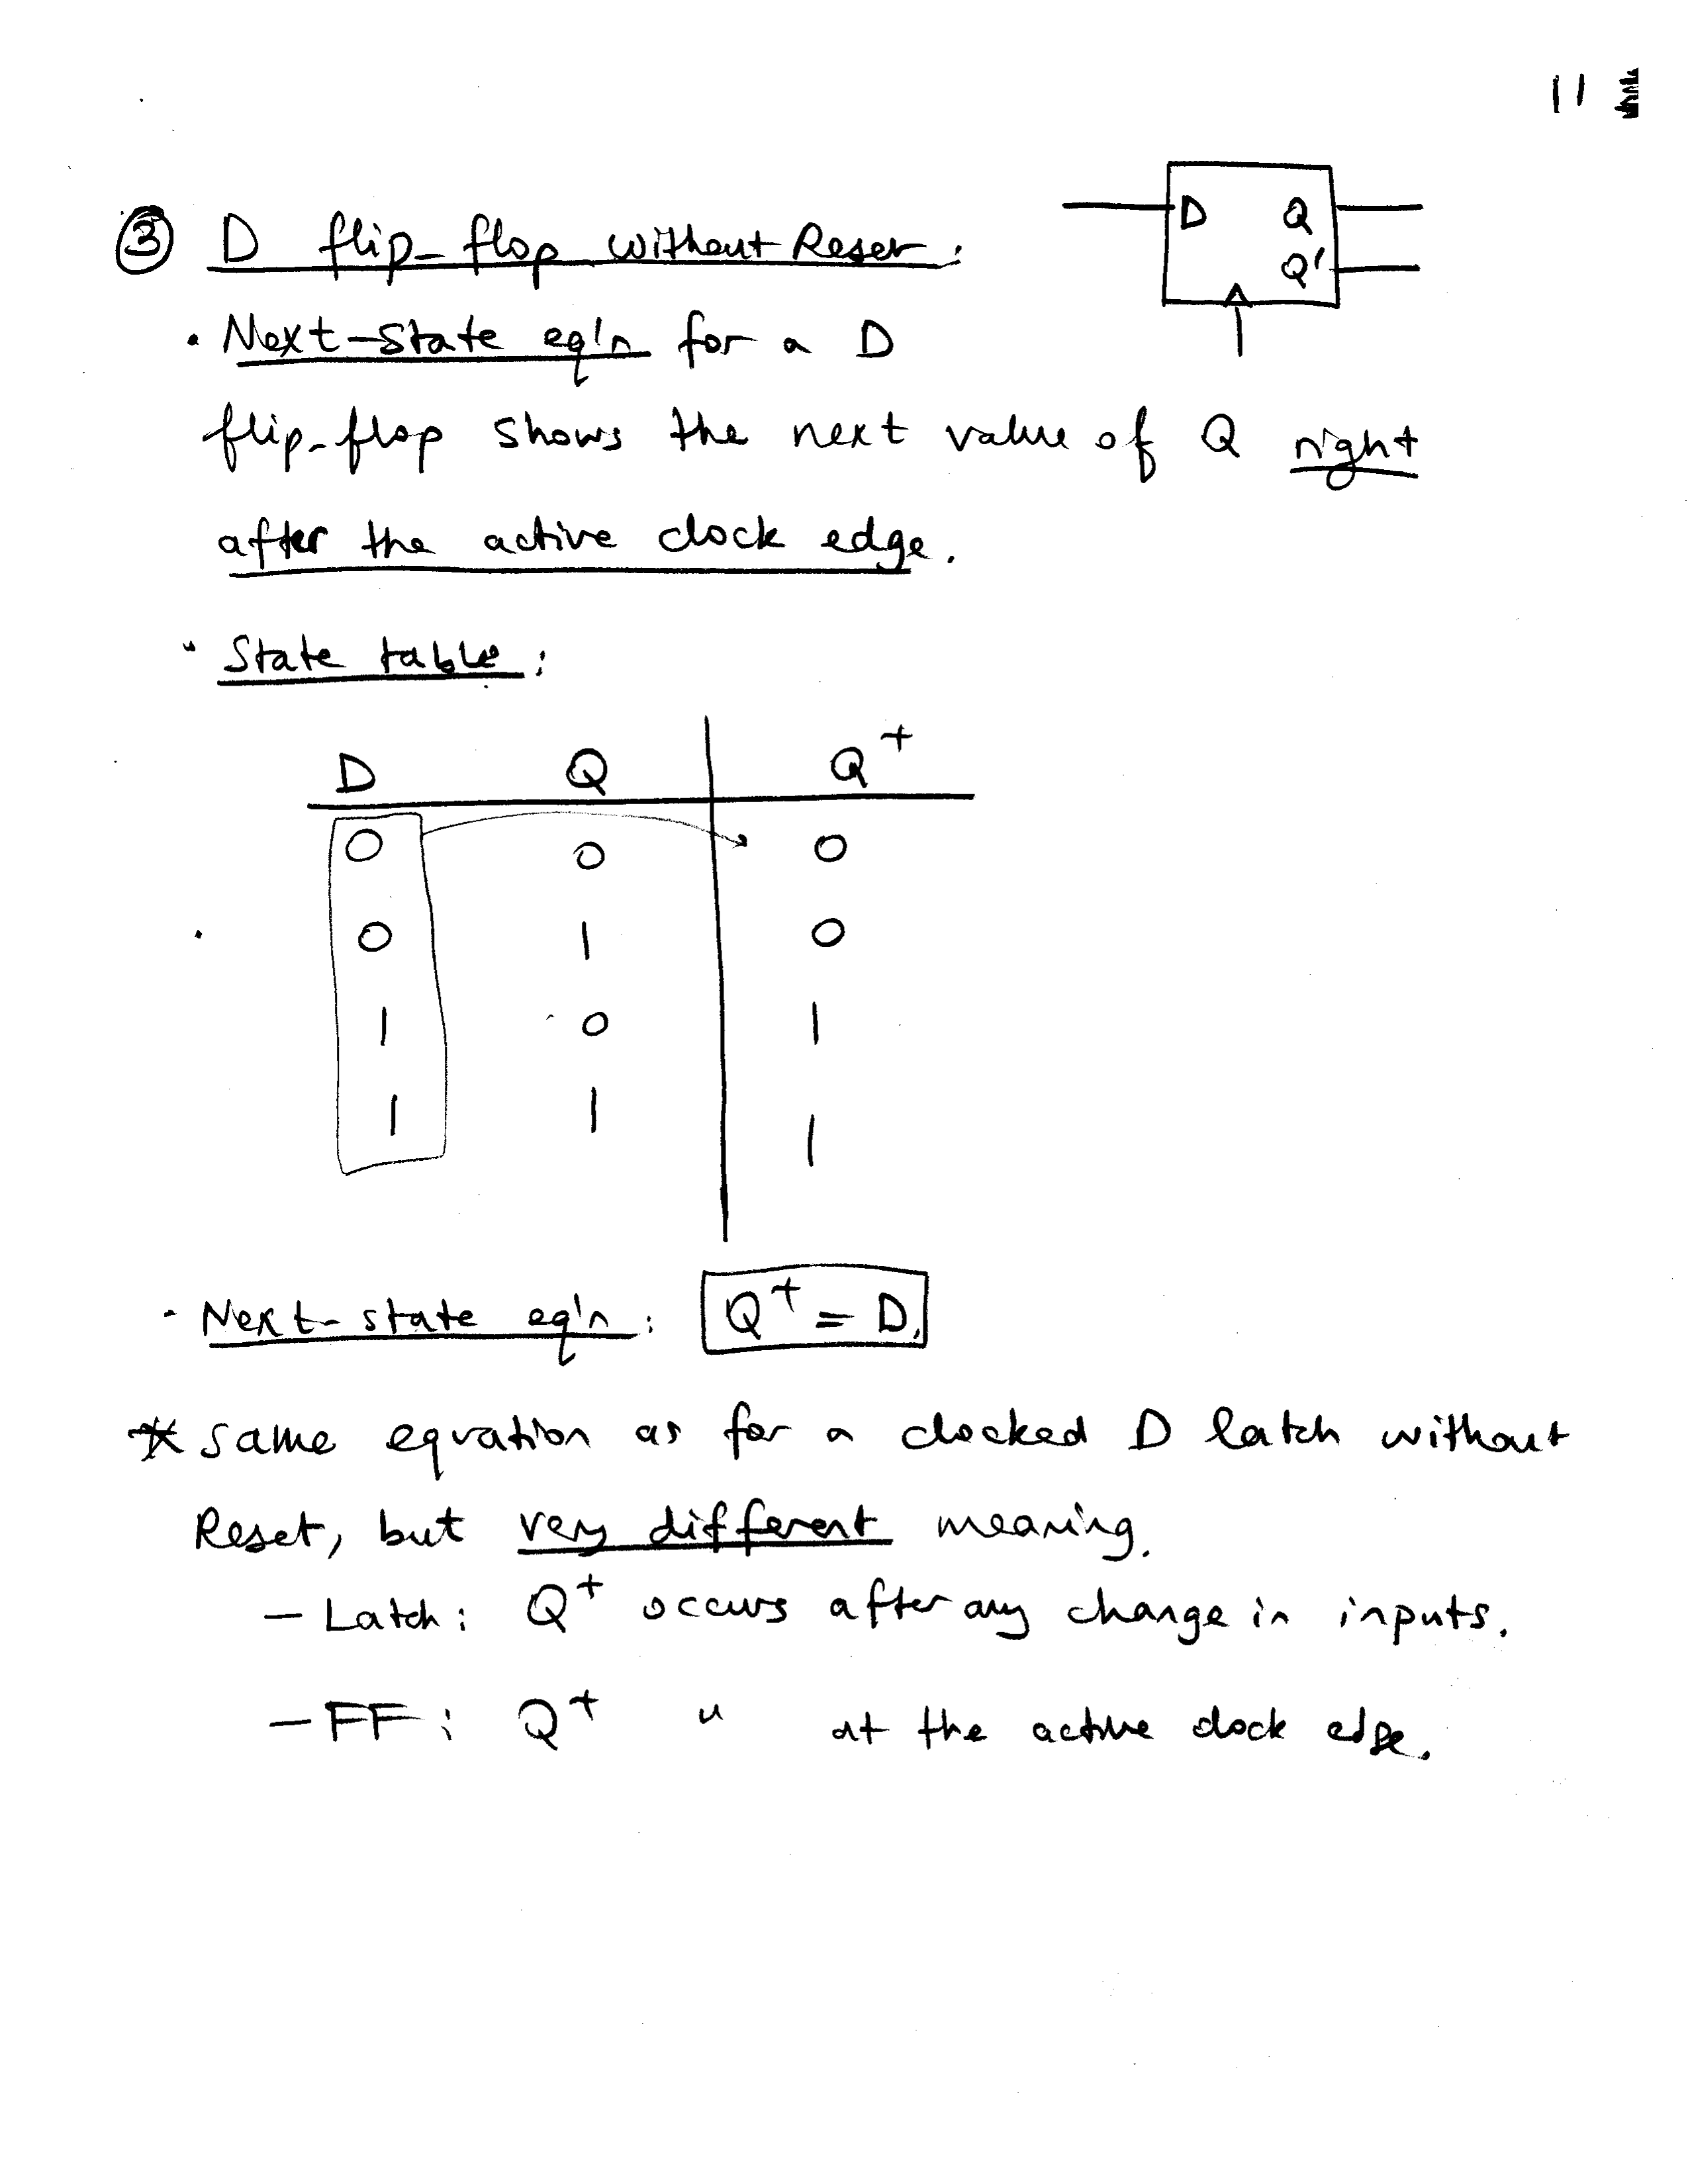 11
③ D flip-flop without Reset:
D Q
Q'
• Next-state eq'n for a D
flip-flop shows the next value of Q right
after the active clock edge.
• State table:
D Q Q⁺
0 0 0
0 1 0
1 0 1
1 1 1
• Next-state eq'n: Q⁺ = D.
* same equation as for a clocked D latch without
Reset, but very different meaning.
- Latch: Q⁺ occurs after any change in inputs.
- FF: Q⁺ " at the active clock edge.